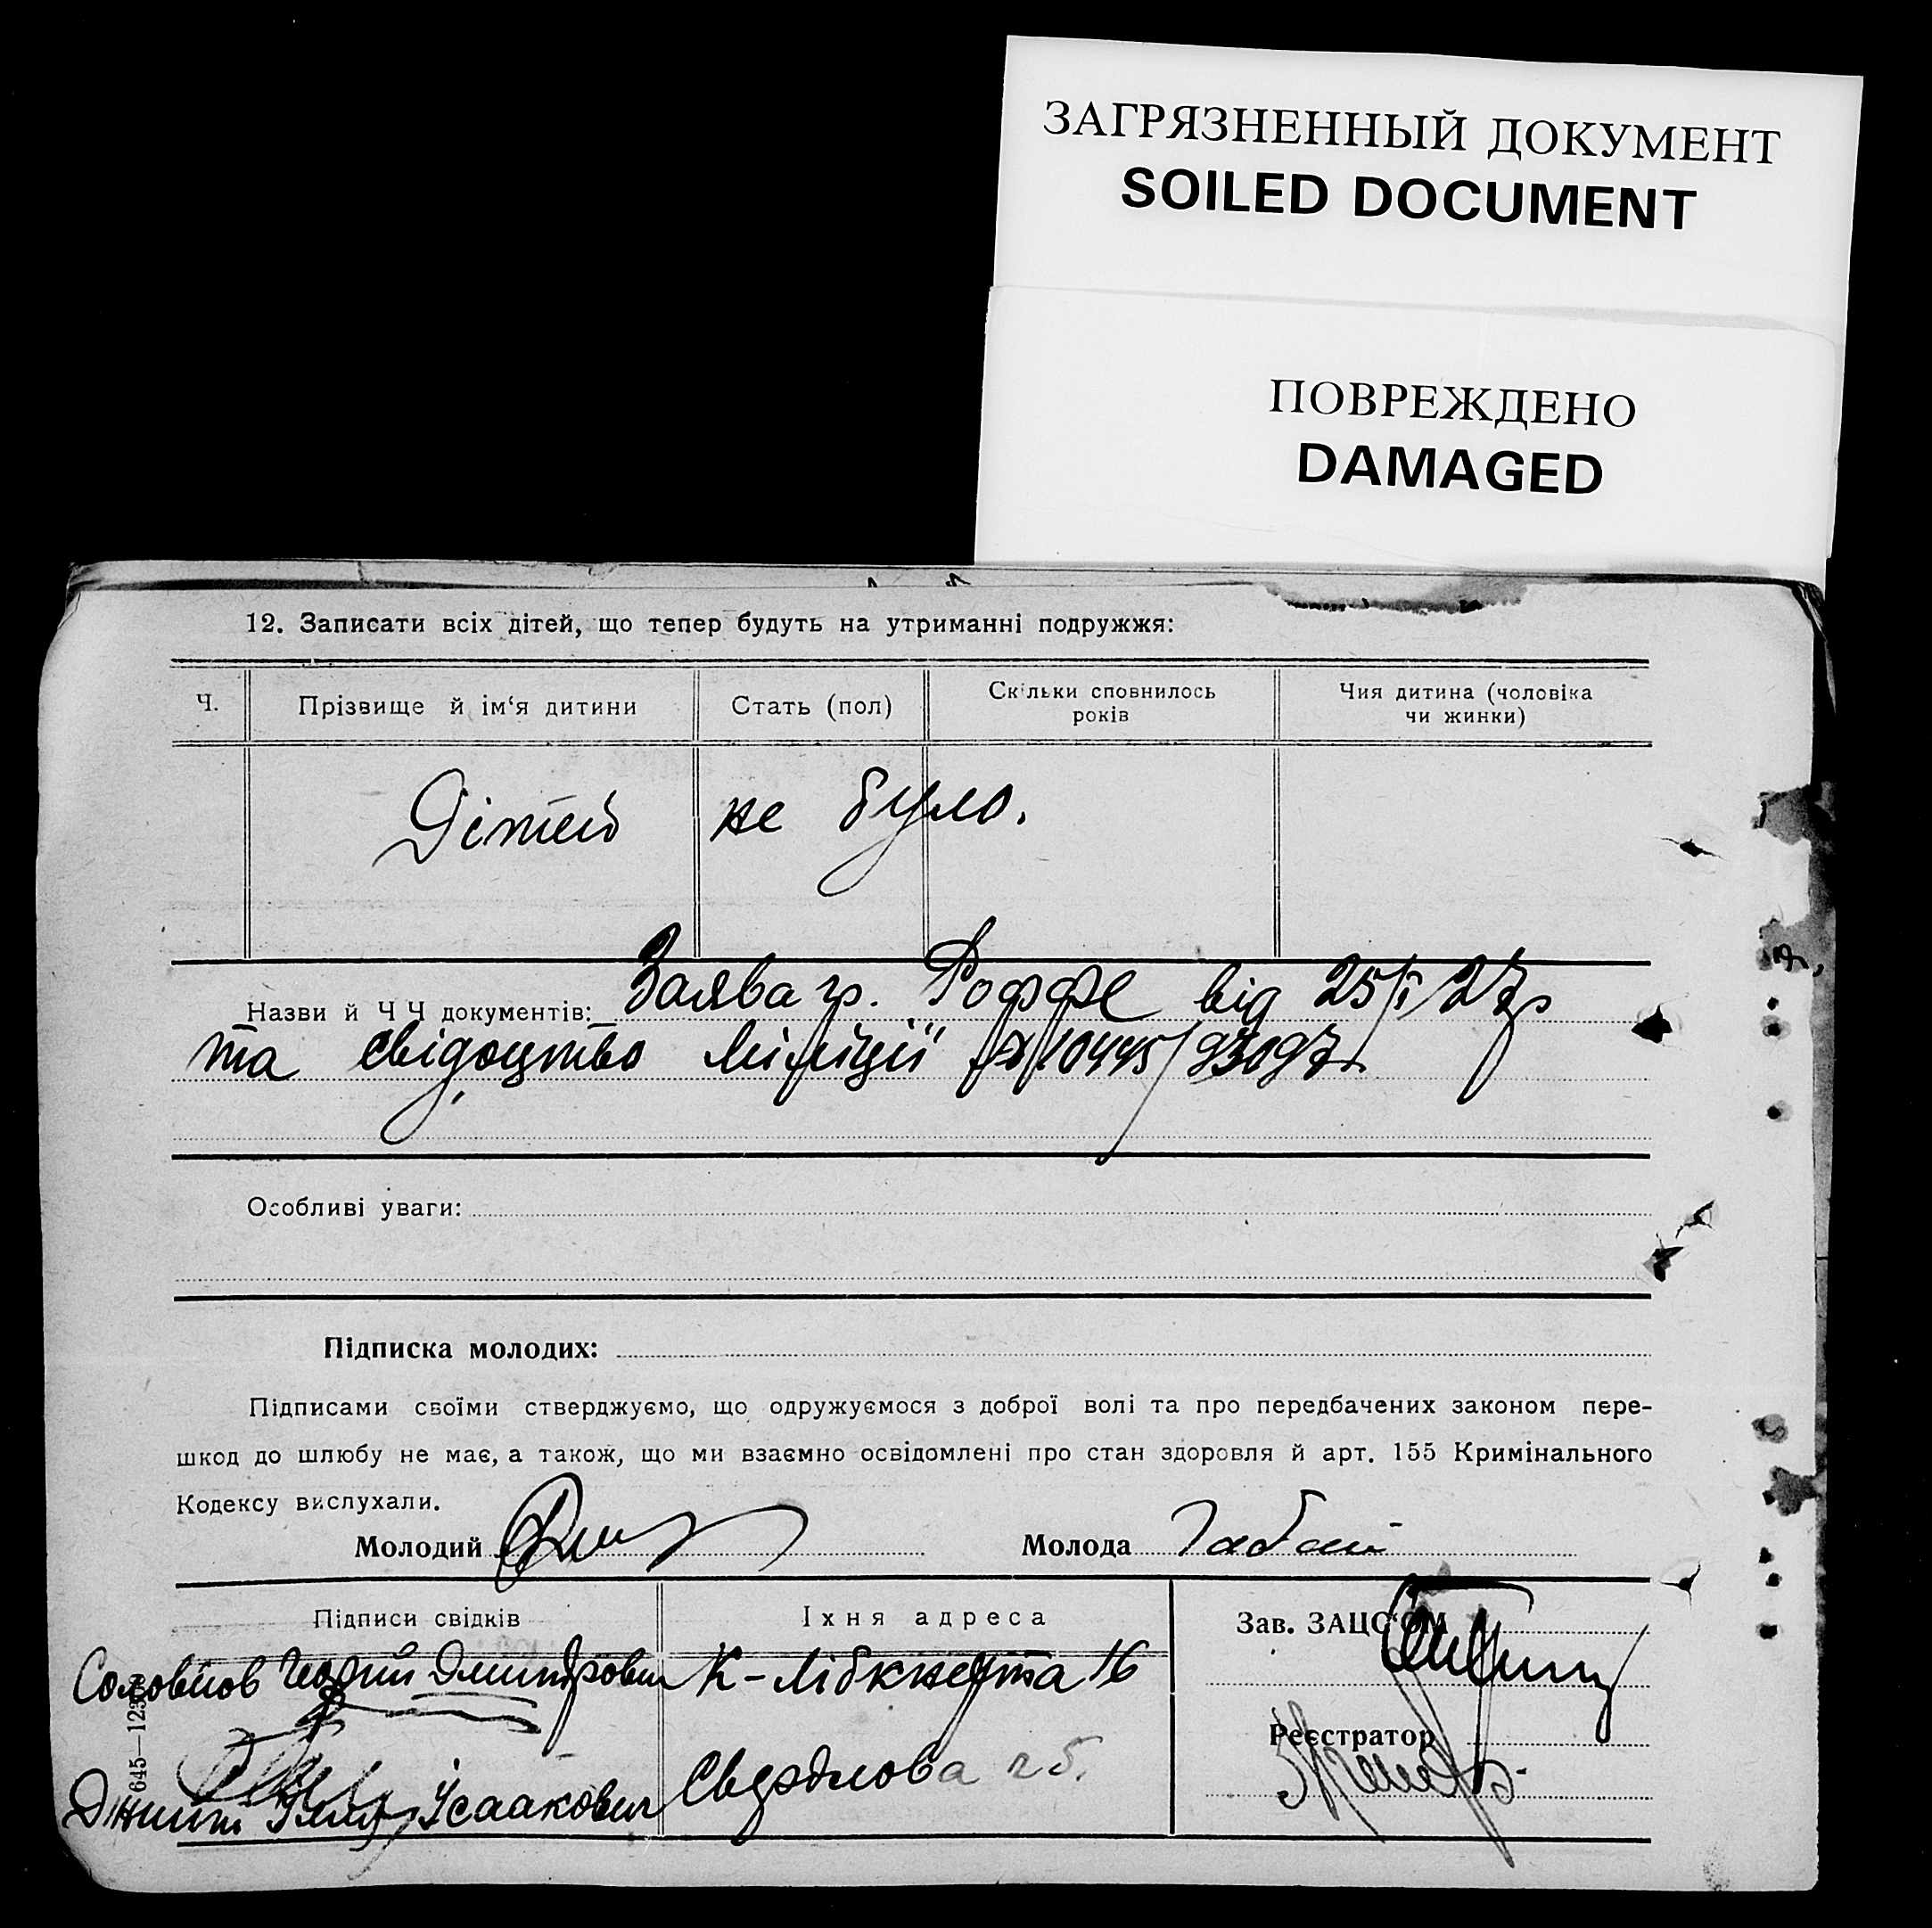 ЗАГРЯЗНЕННЫЙ ДОКУМЕНТ
SOILED DOCUMENT
ПОВРЕЖДЕНО
DAMAGED
12. Записати всіх дітей, що тепер будуть на утриманні подружжя:
Ч.
Прізвище й ім'я дитини
Стать (пол)
Скільки сповнилось років
Чия дитина (чоловіка чи жинки)
Дітей не було.
Назви й Ч Ч документів: Заява гр. Роффе від 25/I 27 р
та свідоцтво Міліції № 10445/93097
Особливі уваги:
Підписка молодих:
Підписами своїми стверджуємо, що одружуємося з доброї волі та про передбачених законом пере-
шкод до шлюбу не має, а також, що ми взаємно освідомлені про стан здоровля й арт. 155 Кримінального
Кодексу вислухали.
Молодий
Молода
Підписи свідків
Їхня адреса
Зав. ЗАЦС'ОМ
Соловйов Дмитрович К-Лібкнехта 16
Реєстратор
Ісаакович Свердлова
645—123